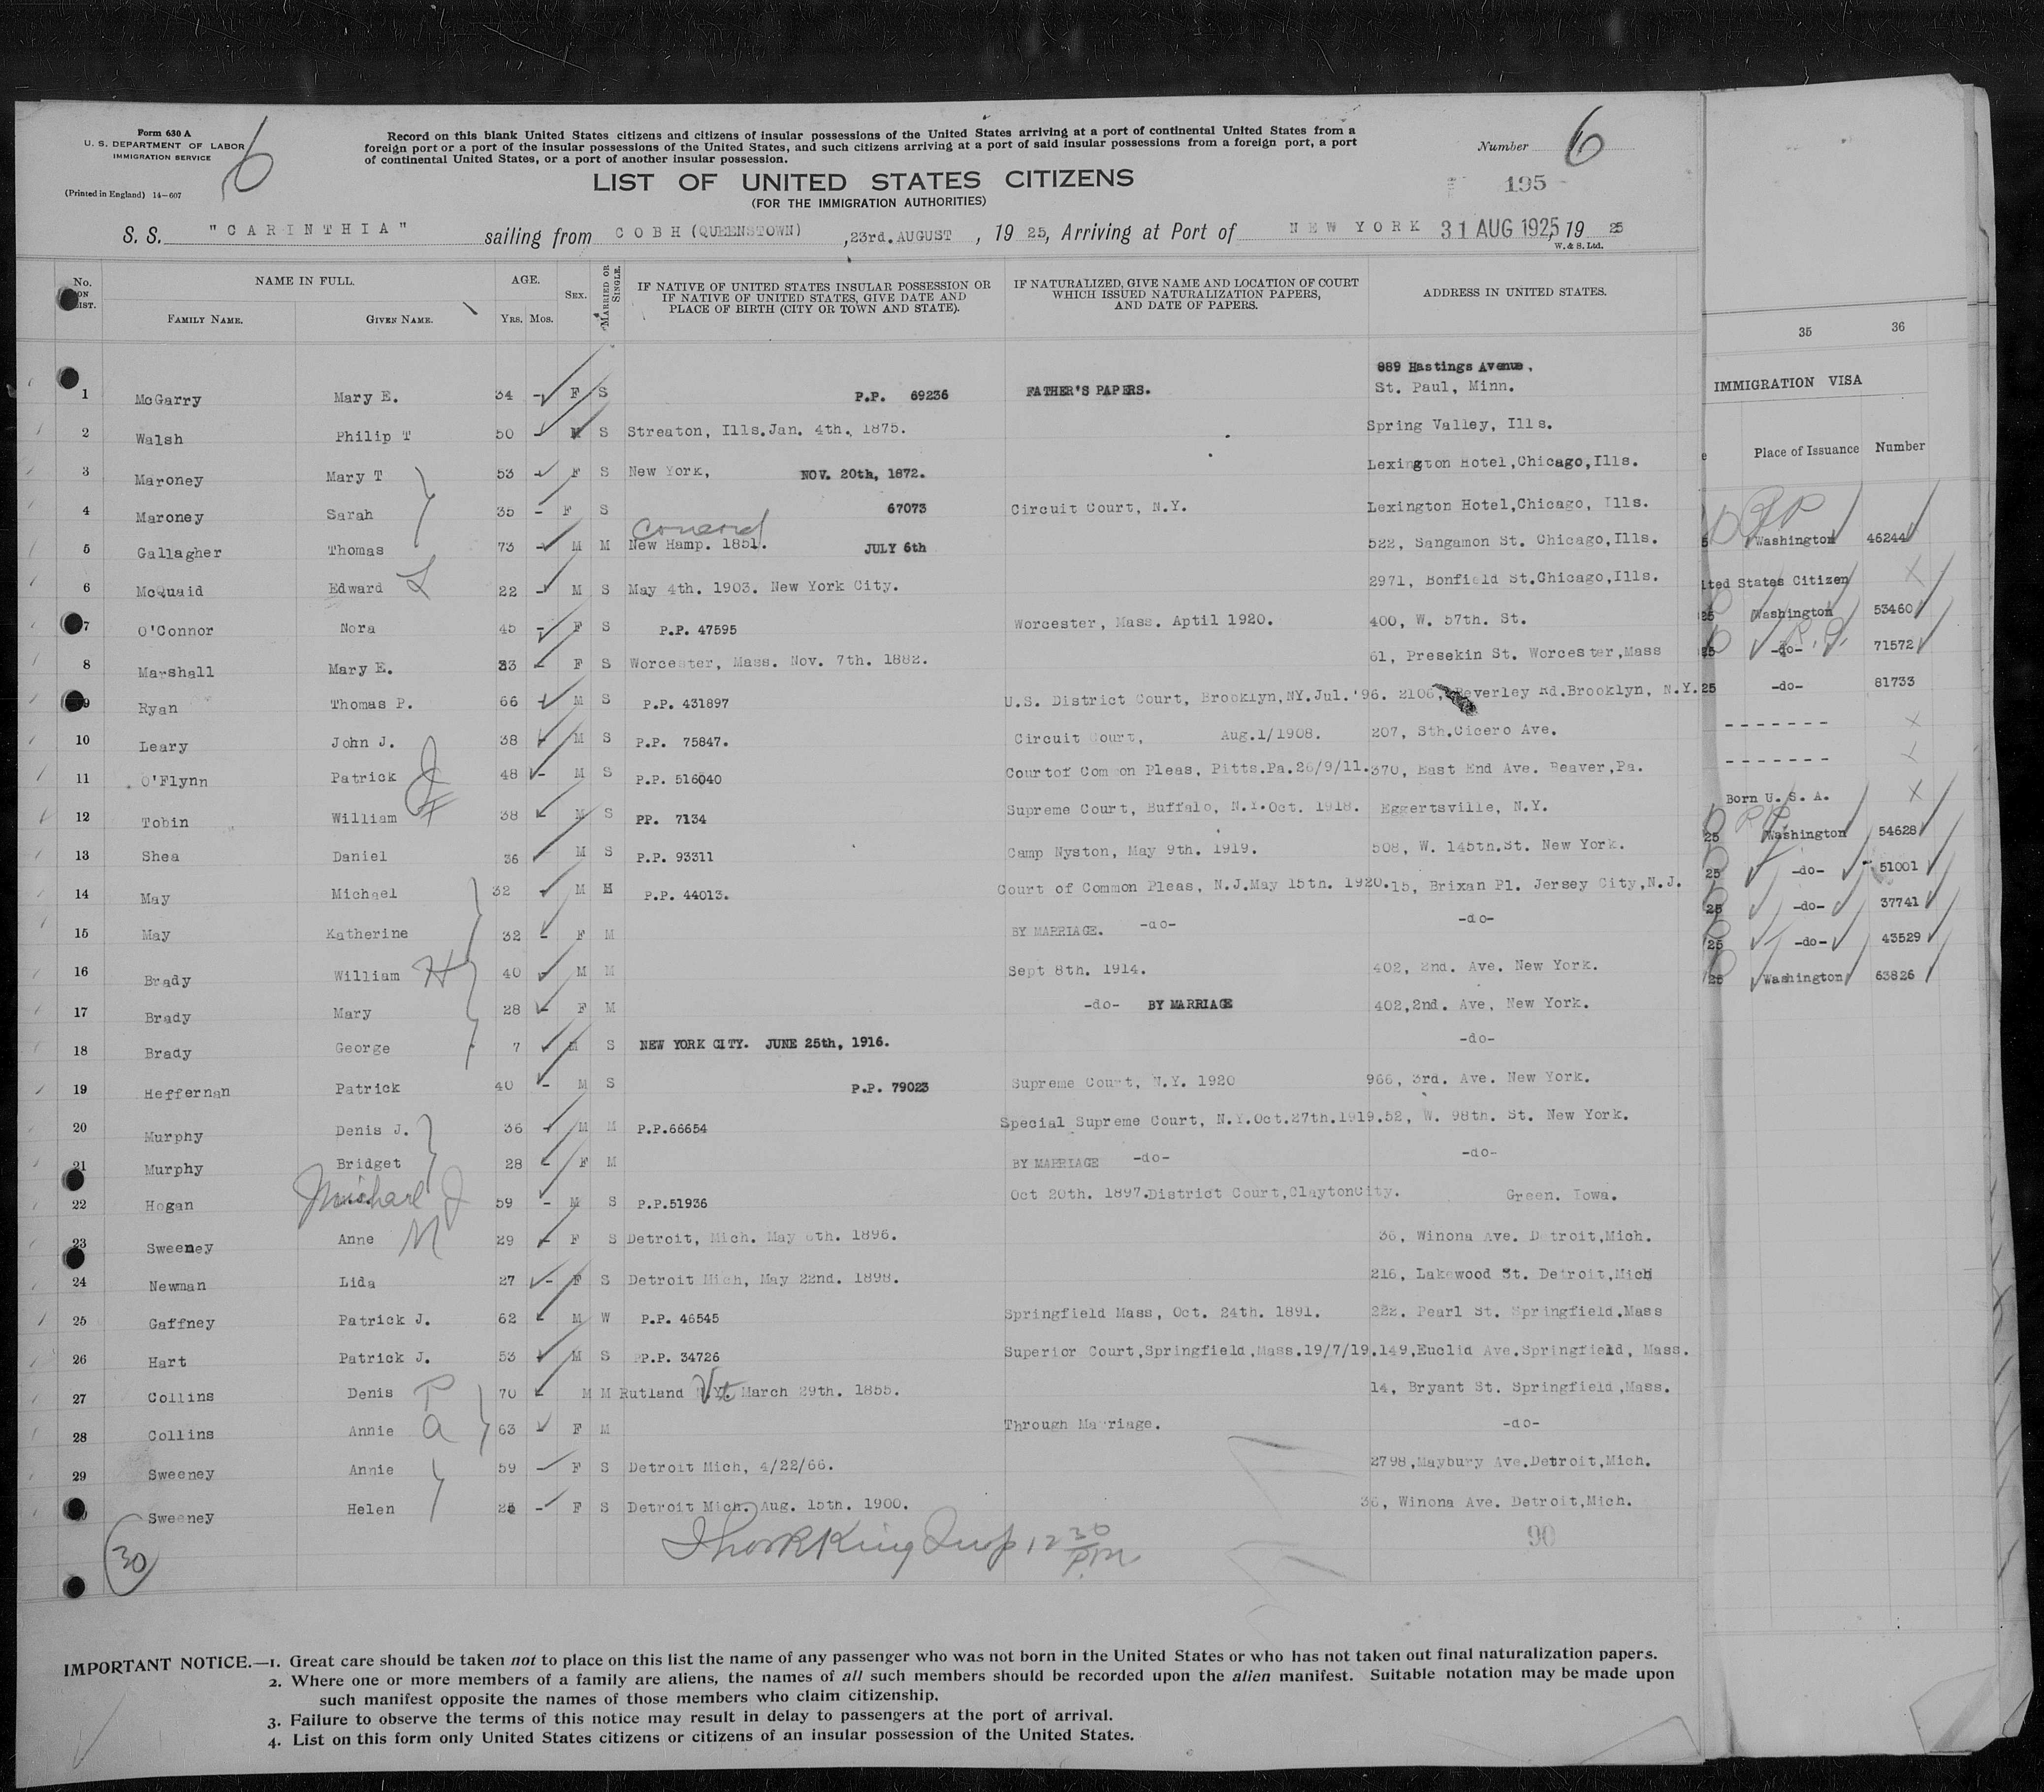 Form 630 A
U. S. DEPARTMENT OF LABOR
IMMIGRATION SERVICE
(Printed in England) 14-607
6
Record on this blank United States citizens and citizens of insular possessions of the United States arriving at a port of continental United States from a
foreign port or a port of the insular possessions of the United States, and such citizens arriving at a port of said insular possessions from a foreign port, a port
of continental United States, or a port of another insular possession.
Number 6
195
LIST OF UNITED STATES CITIZENS
(FOR THE IMMIGRATION AUTHORITIES)
S. S. "CARINTHIA" sailing from COBH (QUEENSTOWN) ,23rd.AUGUST , 19 25, Arriving at Port of NEW YORK 31 AUG 1925, 19 25
W. & S. Ltd.
No. ON LIST. NAME IN FULL. FAMILY NAME. GIVEN NAME. AGE. YRS. MOS. SEX. MARRIED OR SINGLE. IF NATIVE OF UNITED STATES INSULAR POSSESSION OR IF NATIVE OF UNITED STATES, GIVE DATE AND PLACE OF BIRTH (CITY OR TOWN AND STATE). IF NATURALIZED, GIVE NAME AND LOCATION OF COURT WHICH ISSUED NATURALIZATION PAPERS, AND DATE OF PAPERS. ADDRESS IN UNITED STATES.
1 McGarry Mary E. 34 - F S P.P. 69236 FATHER'S PAPERS. 889 Hastings Avenue, St. Paul, Minn.
2 Walsh Philip T 50 - M S Streaton, Ills.Jan. 4th., 1875. Spring Valley, Ills.
3 Maroney Mary T 53 - F S New York, NOV. 20th, 1872. Lexington Hotel,Chicago,Ills.
4 Maroney Sarah 35 - F S 67073 Circuit Court, N.Y. Lexington Hotel,Chicago, Ills.
5 Gallagher Thomas 73 - M M New Hamp. 1851. JULY 6th 522, Sangamon St. Chicago,Ills.
6 McQuaid Edward L 22 - M S May 4th. 1903. New York City. 2971, Bonfield St.Chicago,Ills.
7 O'Connor Nora 45 - F S P.P. 47595 Worcester, Mass. Aptil 1920. 400, W. 57th. St.
8 Marshall Mary E. 33 - F S Worcester, Mass. Nov. 7th. 1882. 61, Presekin St. Worcester,Mass
9 Ryan Thomas P. 66 - M S P.P. 431897 U.S. District Court, Brooklyn,NY.Jul.'96. 2106, Beverley Rd.Brooklyn, N.Y.
10 Leary John J. 38 - M S P.P. 75847. Circuit Court, Aug.1/1908. 207, Sth.Cicero Ave.
11 O'Flynn Patrick J 48 - M S P.P. 516040 Courtof Common Pleas, Pitts.Pa.26/9/11. 370, East End Ave. Beaver,Pa.
12 Tobin William F 38 M S PP. 7134 Supreme Court, Buffalo, N.Y.Oct. 1918. Eggertsville, N.Y.
13 Shea Daniel 36 M S P.P. 93311 Camp Nyston, May 9th. 1919. 508, W. 145th.St. New York.
14 May Michael 32 M M P.P. 44013. Court of Common Pleas, N.J.May 15th. 1920. 15, Brixan Pl. Jersey City,N.J.
15 May Katherine 32 - F M BY MARRIAGE. -do- -do-
16 Brady William H 40 - M M Sept 8th. 1914. 402, 2nd. Ave. New York.
17 Brady Mary 28 - F M -do- BY MARRIAGE 402,2nd. Ave, New York.
18 Brady George 7 M S NEW YORK CITY. JUNE 25th, 1916. -do-
19 Heffernan Patrick 40 - M S P.P. 79023 Supreme Court, N.Y. 1920 966, 3rd. Ave. New York.
20 Murphy Denis J. 36 - M M P.P.66654 Special Supreme Court, N.Y.Oct.27th.1919. 52, W. 98th. St. New York.
21 Murphy Bridget 28 - F M BY MARRIAGE -do- -do-
22 Hogan Michael J 59 - M S P.P.51936 Oct 20th. 1897.District Court,ClaytonCity. Green. Iowa.
23 Sweeney Anne M 29 - F S Detroit, Mich. May 6th. 1896. 36, Winona Ave. Detroit,Mich.
24 Newman Lida 27 - F S Detroit Mich, May 22nd. 1898. 216, Lakewood St. Detroit,Mich
25 Gaffney Patrick J. 62 - M W P.P. 46545 Springfield Mass, Oct. 24th. 1891. 222. Pearl St. Springfield.Mass
26 Hart Patrick J. 53 M S P.P. 34726 Superior Court,Springfield,Mass.19/7/19. 149,Euclid Ave.Springfield, Mass.
27 Collins Denis P 70 - M M Rutland Vt. March 29th. 1855. 14, Bryant St. Springfield,Mass.
28 Collins Annie A 63 F M Through Marriage. -do-
29 Sweeney Annie 59 - F S Detroit Mich, 4/22/66. 2798,Maybury Ave.Detroit,Mich.
Sweeney Helen 25 - F S Detroit Mich. Aug. 15th. 1900. 36, Winona Ave. Detroit,Mich.
30
King Insp 12 30 PM
90
IMPORTANT NOTICE.—1. Great care should be taken not to place on this list the name of any passenger who was not born in the United States or who has not taken out final naturalization papers.
2. Where one or more members of a family are aliens, the names of all such members should be recorded upon the alien manifest. Suitable notation may be made upon
such manifest opposite the names of those members who claim citizenship.
3. Failure to observe the terms of this notice may result in delay to passengers at the port of arrival.
4. List on this form only United States citizens or citizens of an insular possession of the United States.
35 36
IMMIGRATION VISA
Place of Issuance Number
Washington 46244
ited States Citizen X
25 Washington 53460
25 -do- 71572
25 -do- 81733
------- X
------- X
Born U. S. A. X
25 Washington 54628
25 -do- 51001
25 -do- 37741
25 -do- 43529
25 Washington 63826